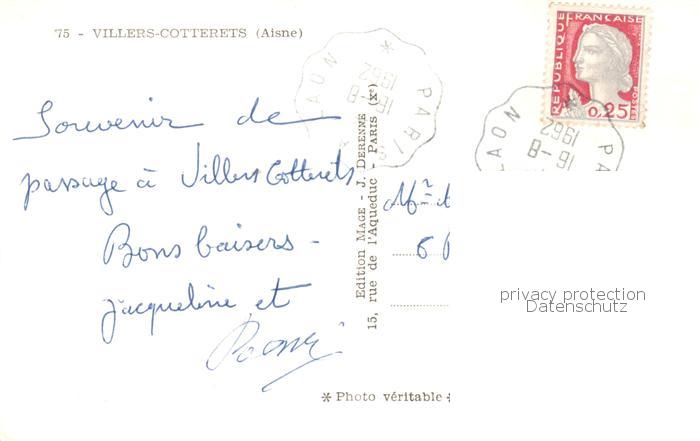 75 - VILLERS-COTTERETS (Aisne)
Souvenir de
passage à Villers Cotterets
Bons baisers -
Jacqueline et
Edition MAGE - J. DERENNE
15, rue de l'Aqueduc - PARIS (Xe)
* Photo véritable
LAON * PARIS
16-8
1962
REPUBLIQUE FRANCAISE
POSTES
0,25
LAON
16-8
1962
6
privacy protection
Datenschutz